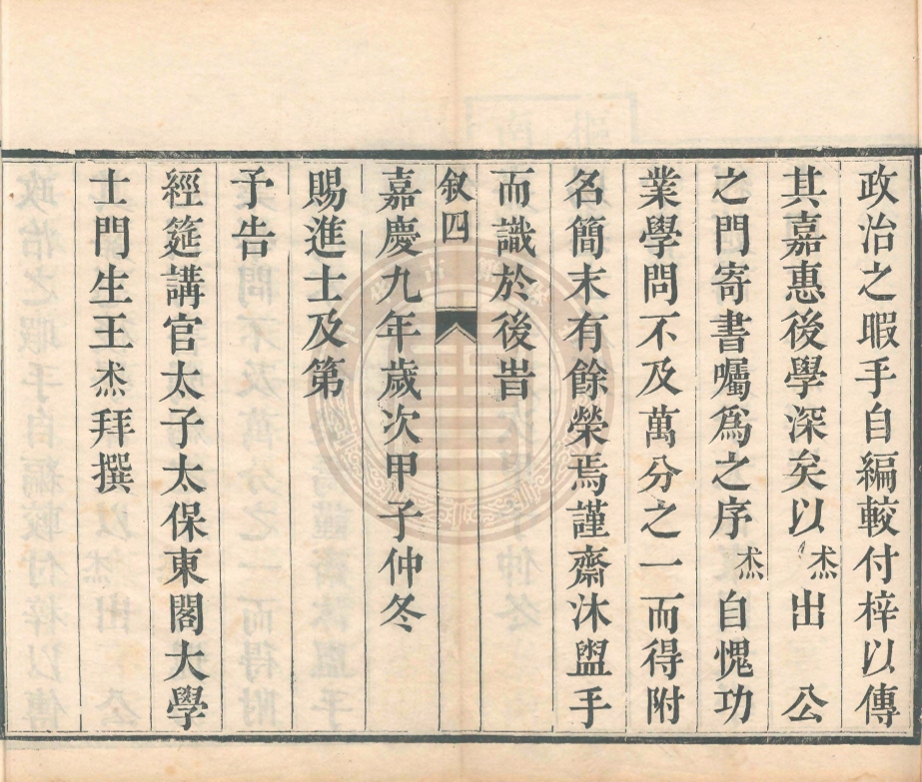 政治之暇手自編較付梓以傳
其嘉惠後學深矣以杰出　公
之門寄書囑爲之序杰自愧功
業學問不及萬分之一而得附
名簡末有餘榮焉謹齋沐盥手
而識於後旹
叙四
嘉慶九年歲次甲子仲冬
賜進士及第
予告
經筵講官太子太保東閣大學
士門生王杰拜撰